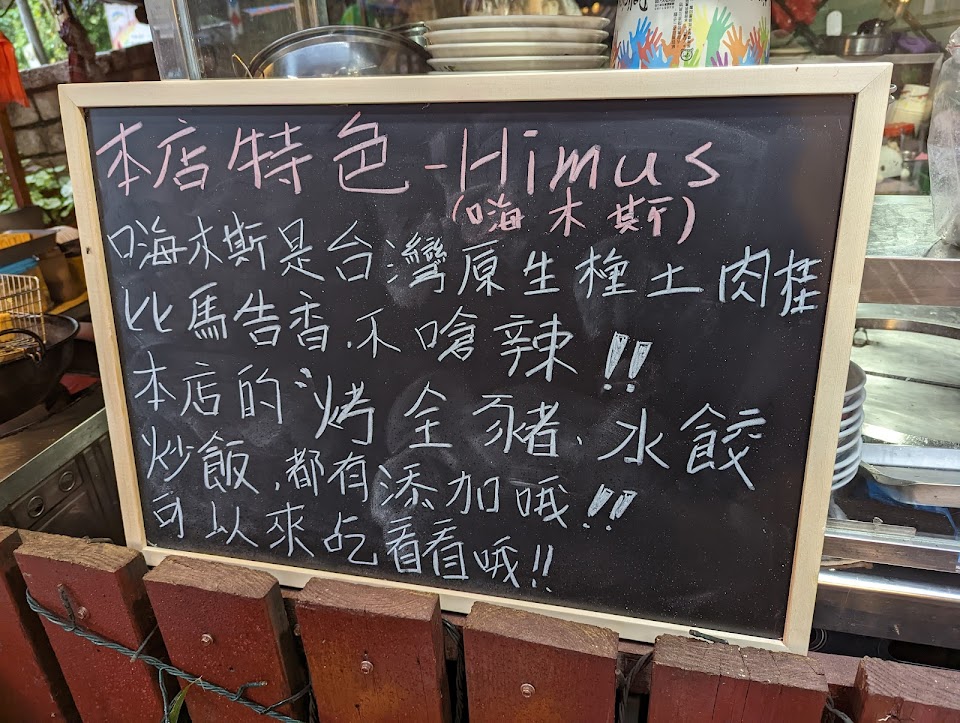 本店特色-Himus
(嗨木斯)
嗨木斯是台灣原生種土肉桂
比馬告香、不嗆辣!!
本店的烤全豬、水餃
炒飯、都有添加哦!!
可以來吃看看哦!!